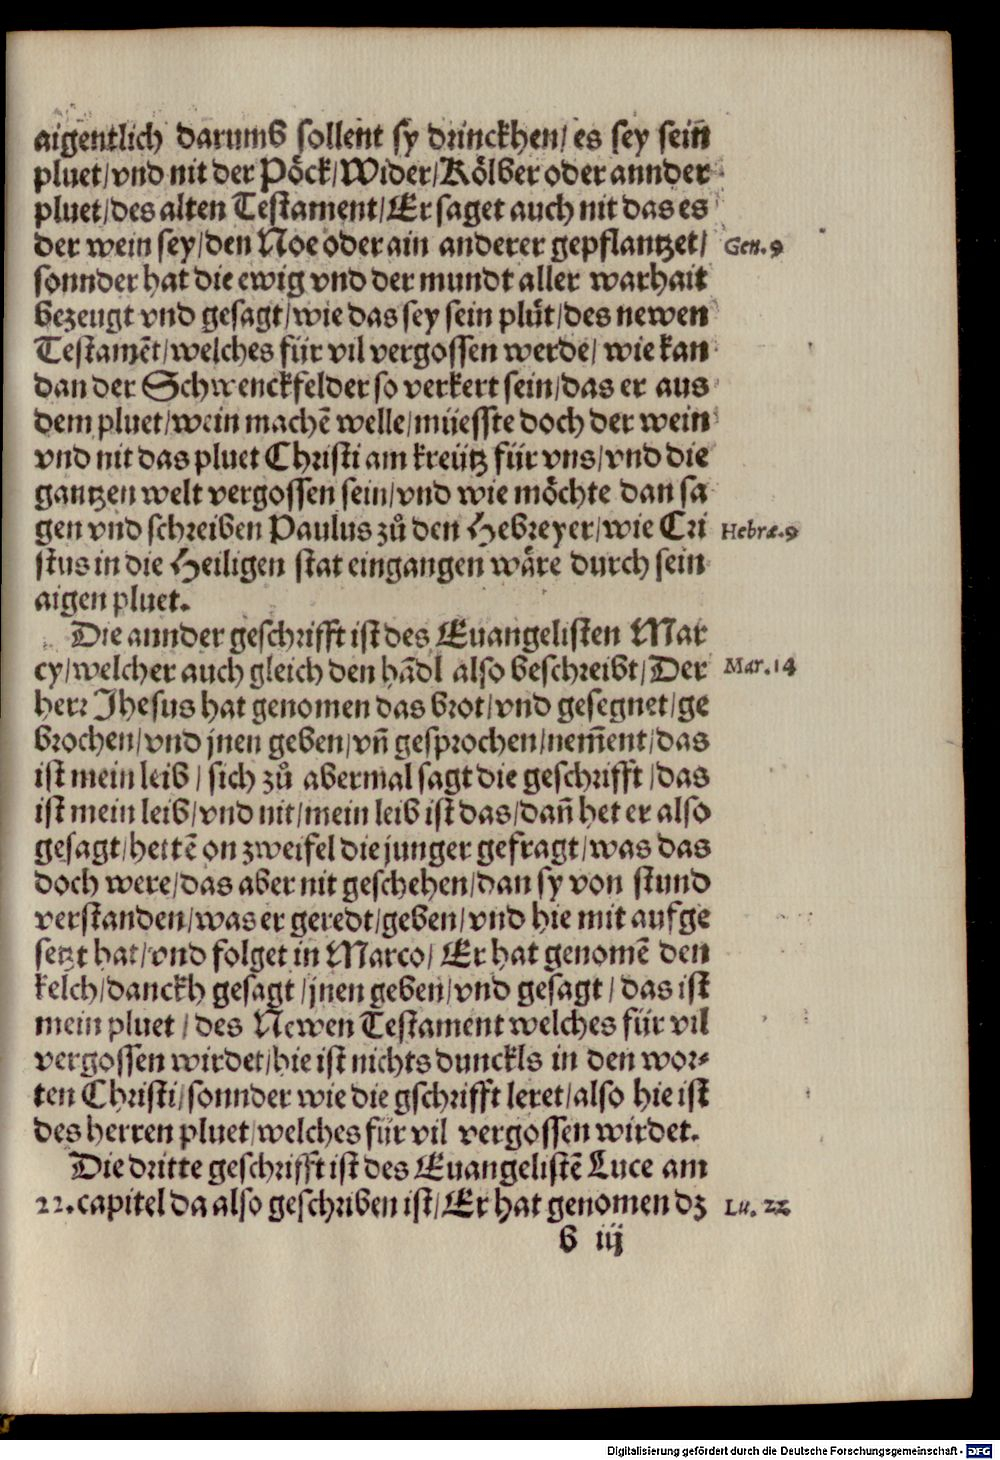 aigentlich darumb sollent sy drinckhen/ es sey sein̄
pluet/vnd nit der Pöck/Wider/Kölber oder annder
pluet/des alten Testament/Er saget auch nit das es
der wein sey/den Noe oder ain anderer gepflantzet/ Gen. 9
sonnder hat die ewig vnd der mundt aller warhait
bezeugt vnd gesagt/wie das sey sein plůt/des newen
Testamēt/welches für vil vergossen werde/ wie kan
dan der Schwenckfelder so verkert sein/das er aus
dem pluet/wein machē welle/müesste doch der wein
vnd nit das pluet Christi am kreütz für vns/vnd die
gantzen welt vergossen sein/vnd wie möchte dan sa
gen vnd schreiben Paulus zů den Hebreyer/wie Cri Hebræ. 9
stus in die Heiligen stat eingangen wäre durch sein
aigen pluet.
Die annder geschrifft ist des Euangelisten Mar
cy/welcher auch gleich den hādl also beschreibt/Der Mar. 14
herr Jhesus hat genomen das brot/vnd gesegnet/ge
brochen/vnd jnen geben/vn̄ gesprochen/nem̄ent/das
ist mein leib/ sich zů abermal sagt die geschrifft/das
ist mein leib/vnd nit/mein leib ist das/dan̄ het er also
gesagt/hettē on zweifel die junger gefragt/was das
doch were/das aber nit geschehen/dan sy von stund
verstanden/was er geredt/geben/vnd hie mit aufge
setzt hat/vnd folget in Marco/ Er hat genomē den
kelch/danckh gesagt/jnen geben/vnd gesagt/ das ist
mein pluet/ des Newen Testament welches für vil
vergossen wirdet/hie ist nichts dunckls in den wor-
ten Christi/sonnder wie die gschrifft leret/also hie ist
des herren pluet/welches für vil vergossen wirdet.
Die dritte geschrifft ist des Euangelistē Luce am
22. capitel da also geschriben ist/Er hat genomen dz Lu. 22
b iij
Digitalisierung gefördert durch die Deutsche Forschungsgemeinschaft - DFG